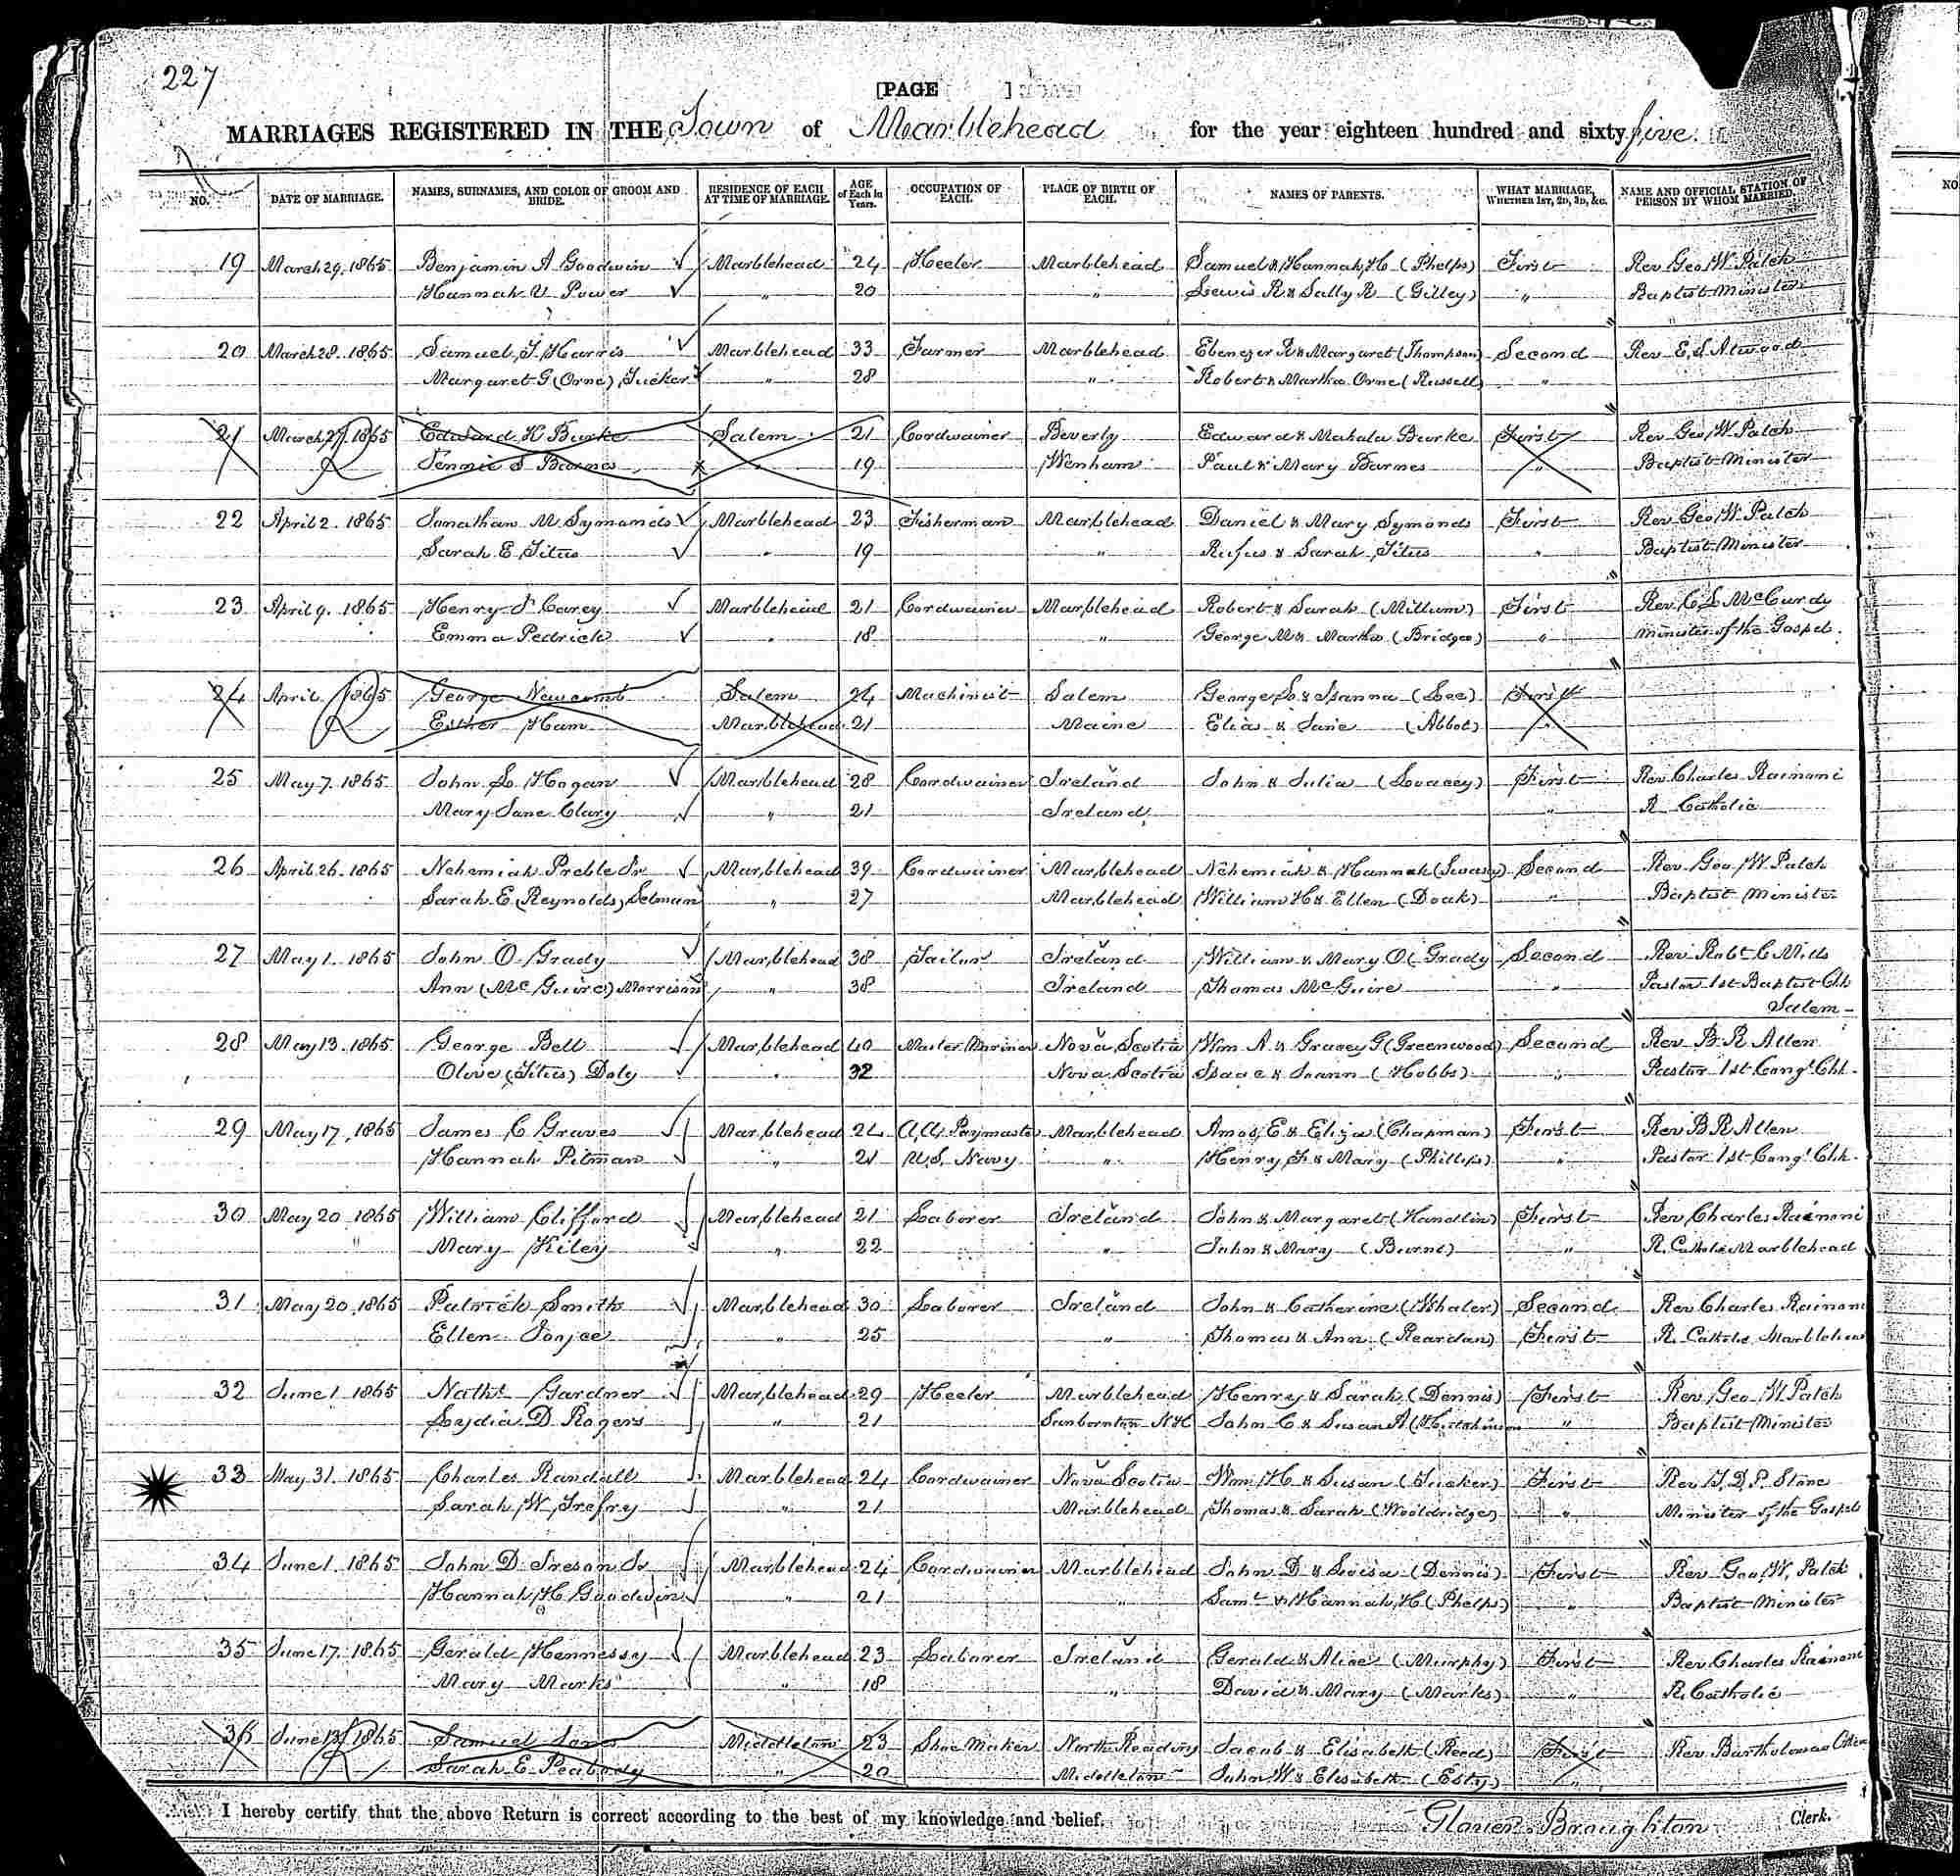 227
[PAGE ]
MARRIAGES REGISTERED IN THE Town of Marblehead for the year eighteen hundred and sixty five.
NO. DATE OF MARRIAGE. NAMES, SURNAMES, AND COLOR OF GROOM AND BRIDE. RESIDENCE OF EACH AT TIME OF MARRIAGE. AGE of Each in Years. OCCUPATION OF EACH. PLACE OF BIRTH OF EACH. NAMES OF PARENTS. WHAT MARRIAGE, WHETHER 1ST, 2D, 3D, &C. NAME AND OFFICIAL STATION OF PERSON BY WHOM MARRIED.
19 March 29. 1865 Benjamin A Goodwin Marblehead 24 Heeler Marblehead Samuel & Hannah H (Phelps) First Rev Geo W Patch
Hannah V Power " 20 " Lewis R & Sally R (Gilley) " Baptist Minister
20 March 28. 1865 Samuel J Harris Marblehead 33 Farmer Marblehead Ebenezer R & Margaret (Thompson) Second Rev E. S Atwood
Margaret G (Orne) Tucker " 28 " Robert & Martha Orne (Russell) "
21 March 27. 1865 Edward K Burke Salem 21 Cordwainer Beverly Edward & Mahala Burke First Rev Geo W Patch
Jennie S Barnes " 19 Wenham Paul & Mary Barnes " Baptist Minister
22 April 2. 1865 Jonathan M Symonds Marblehead 23 Fisherman Marblehead Daniel & Mary Symonds First Rev Geo W Patch
Sarah E Titus " 19 " Rufus & Sarah Titus " Baptist Minister
23 April 9. 1865 Henry F Carey Marblehead 21 Cordwainer Marblehead Robert & Sarah (Millium) First Rev C L McCurdy
Emma Pedrick " 18 " George M & Martha (Bridgeo) " Minister of the Gospel.
24 April 1865 George Newcomb Salem 24 Machinist Salem George L & Joanna (Lee) First
Esther Ham Marblehead 21 Maine Elias & Jane (Abbot) "
25 May 7. 1865 John L Hogan Marblehead 28 Cordwainer Ireland John & Julia (Lovacey) First Rev Charles Rainoni
Mary Jane Clary " 21 Ireland " R Catholic
26 April 26. 1865 Nehemiah Preble Jr Marblehead 39 Cordwainer Marblehead Nehemiah & Hannah (Swasey) Second Rev Geo W Patch
Sarah E (Reynolds) Selman " 27 Marblehead William H & Ellen (Doak) " Baptist Minister
27 May 1. 1865 John O Grady Marblehead 38 Tailor Ireland William & Mary O Grady Second Rev Robt C Mills
Ann (McGuire) Morrison " 38 Ireland Thomas McGuire " Pastor 1st Baptist Ch
Salem
28 May 13. 1865 George Bell Marblehead 40 Master Mariner Nova Scotia Wm A & Gracey G (Greenwood) Second Rev B. R Allen
Olive (Titus) Doly " 32 Nova Scotia Isaac & Joann (Hobbs) " Pastor 1st Congl Chh.
29 May 17. 1865 James C Graves Marblehead 24 A. A. Paymaster Marblehead Amos E & Eliza (Chapman) First Rev B R Allen
Hannah Pitman " 21 U.S. Navy " Henry F & Mary (Phillips) " Pastor 1st Congl Chh.
30 May 20 1865 William Clifford Marblehead 21 Laborer Ireland John & Margaret (Handlin) First Rev Charles Rainoni
" Mary Kiley " 22 " John & Mary (Burne) " R. Catholic Marblehead
31 May 20. 1865 Patrick Smith Marblehead 30 Laborer Ireland John & Catherine (Whaler) Second Rev Charles Rainoni
Ellen Joyce " 25 " Thomas & Ann (Reardan) First R. Catholic Marblehead
32 June 1. 1865 Nathl Gardner Marblehead 29 Heeler Marblehead Henry & Sarah (Dennis) First Rev. Geo. W Patch
Lydia D Rogers " 21 Sanbornton NH John C & Susan A (Hutchinson " Baptist Minister
33 May 31. 1865 Charles Randall Marblehead 24 Cordwainer Nova Scotia Wm H & Susan (Tucker) First Rev T. D. P. Stone
Sarah W Trefry " 21 Marblehead Thomas & Sarah (Wooldridge) " Minister of the Gospel
34 June 1. 1865 John D Ireson Jr Marblehead 24 Cordwainer Marblehead John D & Loisa (Dennis) First Rev Geo. W. Patch
Hannah H Goodwin " 21 " Saml & Hannah H (Phelps) " Baptist Minister
35 June 17. 1865 Gerald Hennessy Marblehead 23 Laborer Ireland Gerald & Alice (Murphy) First Rev. Charles Rainoni
Mary Marks " 18 " David & Mary (Marks) " R. Catholic
36 June 13. 1865 Samuel Middleton 23 Shoe Maker North Reading Jacob & Elisabeth (Reed) First Rev. Bartholomew
Sarah E Peabody " 20 Middleton John W & Elisabeth (Esty) "
I hereby certify that the above Return is correct according to the best of my knowledge and belief. Glover Broughton Clerk.
NO